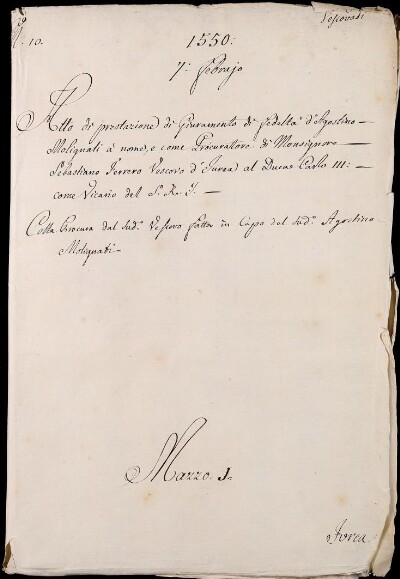 Vescovadi
N. 10.
1550:
7: Febrajo
Atto di prestazione di Giuramento di fedeltà d'Agostino
Molignati à nome, e come Procurattore di Monsignore
Sebastiano Ferrero Vescovo d'Ivrea al Duca Carlo III:
come Vicario del S. R. I.
Colla Procura dal sud.º Vescovo fatta in Capo del sud.º Agostino
Molignati
Mazzo. 1.
Ivrea